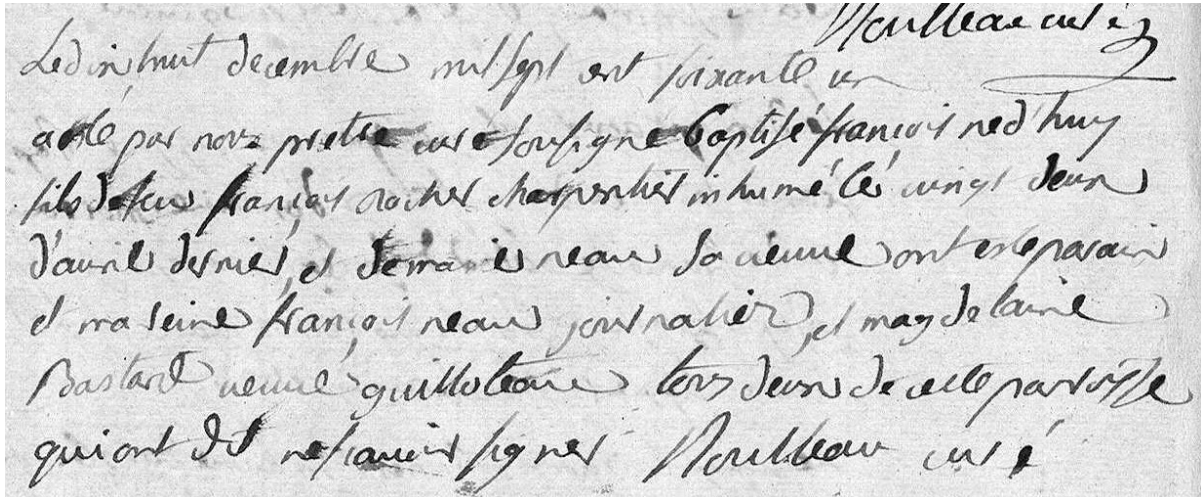 Roulleau curé
Le dix huit decembre mil sept cent soixante un
a esté par nous pretre curé sousigné baptisé françois né d'huy
fils de feu françois rocher charpentier inhumé lé vingt deux
d'avril dernier, et de marie neau sa veuve ont esté parain
et mareine françois neau journalier, et magdelaine
Bastard veuve guilloteau tous deux de cette paroisse
qui ont dit ne scavoir signer Roulleau curé